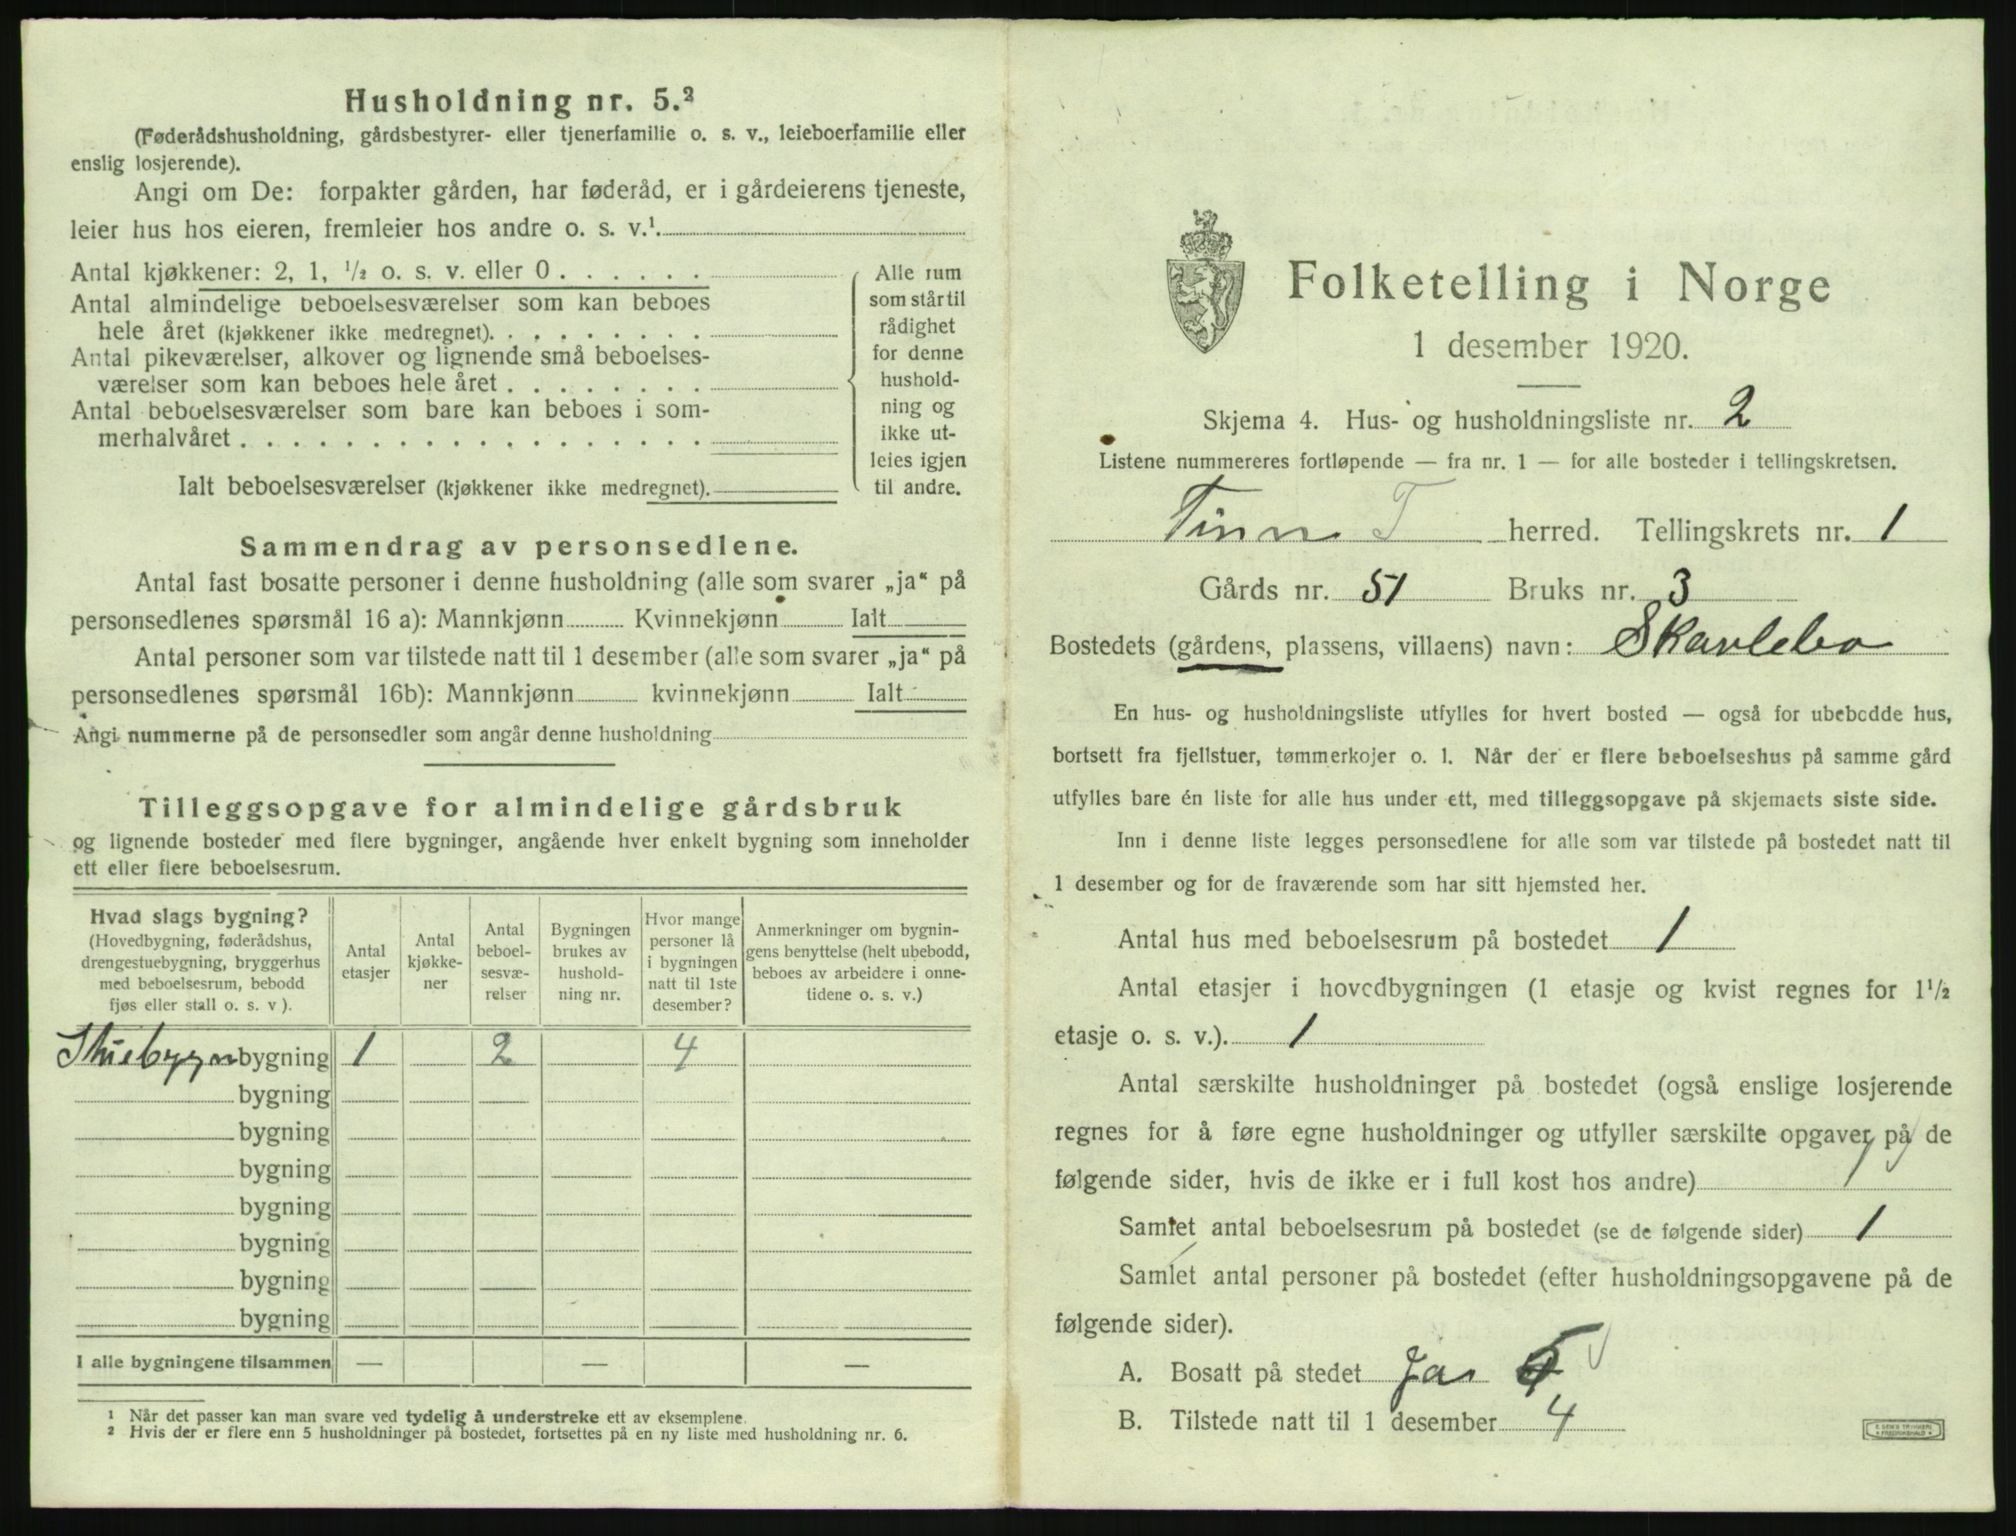 Husholdning nr. 5.²
(Føderådshusholdning, gårdsbestyrer- eller tjenerfamilie o. s. v., leieboerfamilie eller
enslig losjerende).
Angi om De: forpakter gården, har føderåd, er i gårdeierens tjeneste,
leier hus hos eieren, fremleier hos andre o. s. v.¹
Antal kjøkkener: 2, 1, ½ o. s. v. eller 0 . . . . . .
Antal almindelige beboelsesværelser som kan beboes
hele året (kjøkkener ikke medregnet). . . . . . . . .
Antal pikeværelser, alkover og lignende små beboelses-
værelser som kan beboes hele året . . . . . . . .
Antal beboelsesværelser som bare kan beboes i som-
merhalvåret . . . . . . . . . . . . . . . . . .
Ialt beboelsesværelser (kjøkkener ikke medregnet).
Alle rum
som står til
rådighet
for denne
hushold-
ning og
ikke ut-
leies igjen
til andre.
Sammendrag av personsedlene.
Antal fast bosatte personer i denne husholdning (alle som svarer „ja“ på
personsedlenes spørsmål 16 a): Mannkjønn Kvinnekjønn Ialt
Antal personer som var tilstede natt til 1 desember (alle som svarer „ja“ på
personsedlenes spørsmål 16b): Mannkjønn kvinnekjønn Ialt
Angi nummerne på de personsedler som angår denne husholdning
Tilleggsopgave for almindelige gårdsbruk
og lignende bosteder med flere bygninger, angående hver enkelt bygning som inneholder
ett eller flere beboelsesrum.
Hvad slags bygning?
(Hovedbygning, føderådshus,
drengestuebygning, bryggerhus
med beboelsesrum, bebodd
fjøs eller stall o. s. v ).
Antal
etasjer
Antal
kjøkke-
ner
Antal
beboel-
sesvæ-
relser
Bygningen
brukes av
hushold-
ning nr.
Hvor mange
personer lå
i bygningen
natt til 1ste
desember?
Anmerkninger om bygnin-
gens benyttelse (helt ubebodd,
beboes av arbeidere i onne-
tidene o. s. v.)
Stuebygn bygning 1 2 4
bygning
bygning
bygning
bygning
bygning
bygning
bygning
I alle bygningene tilsammen — — —
¹ Når det passer kan man svare ved tydelig å understreke ett av eksemplene.
² Hvis der er flere enn 5 husholdninger på bostedet, fortsettes på en ny liste med husholdning nr. 6.
Folketelling i Norge
1 desember 1920.
Skjema 4. Hus- og husholdningsliste nr. 2
Listene nummereres fortløpende — fra nr. 1 — for alle bosteder i tellingskretsen.
Tinn T herred. Tellingskrets nr. 1
Gårds nr. 51 Bruks nr. 3
Bostedets (gårdens, plassens, villaens) navn: Skavlebo
En hus- og husholdningsliste utfylles for hvert bosted — også for ubebodde hus,
bortsett fra fjellstuer, tømmerkojer o. l. Når der er flere beboelseshus på samme gård
utfylles bare én liste for alle hus under ett, med tilleggsopgave på skjemaets siste side.
Inn i denne liste legges personsedlene for alle som var tilstede på bostedet natt til
1 desember og for de fraværende som har sitt hjemsted her.
Antal hus med beboelsesrum på bostedet 1
Antal etasjer i hovedbygningen (1 etasje og kvist regnes for 1½
etasje o. s. v.). 1
Antal særskilte husholdninger på bostedet (også enslige losjerende
regnes for å føre egne husholdninger og utfyller særskilte opgaver på de
følgende sider, hvis de ikke er i full kost hos andre) 1
Samlet antal beboelsesrum på bostedet (se de følgende sider) 1
Samlet antal personer på bostedet (efter husholdningsopgavene på de
følgende sider).
A. Bosatt på stedet Ja 5
B. Tilstede natt til 1 desember 4